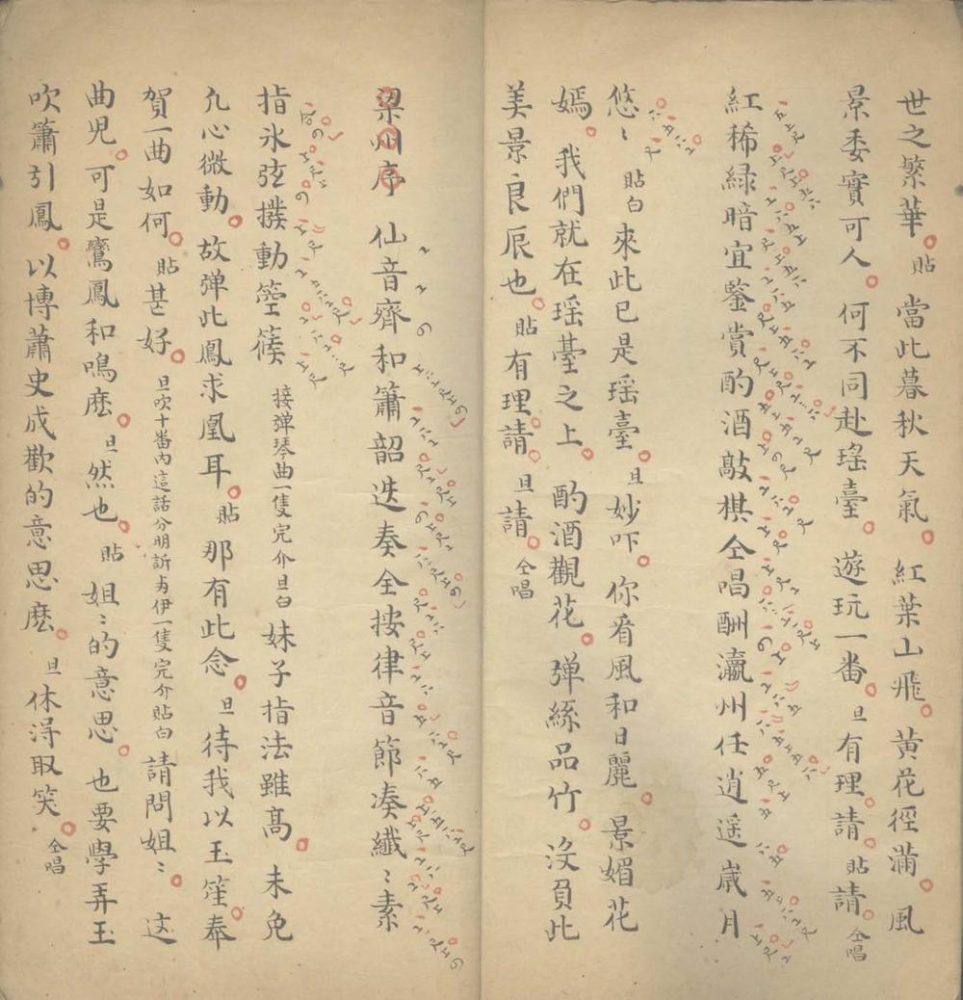 世之繁華。貼當此暮秋天氣。紅葉山飛。黃花徑滿。風
景委實可人。何不同赴瑤臺。遊玩一番。旦有理請。貼請。仝唱
紅稀綠暗宜鑒賞酌酒敲棋仝唱酬瀛州任逍遥歲月
悠〻貼白來此已是瑶臺。旦妙吓。你看風和日麗。景媚花
嫣。我們就在瑶臺之上。酌酒觀花。弹絲品竹。沒負此
美景良辰也。貼有理請。旦請。仝唱
梁州序仙音齊和簫韶迭奏全按律音節凑纖〻素
指氷弦撥動箜篌接弹琴曲一隻完介旦白妹子指法雖高。未免
凢心微動。故弹此鳳求凰耳。貼那有此念。旦待我以玉笙奉
賀一曲如何。貼甚好。旦吹十番內這話分明訴与伊一隻完介貼白請問姐〻。这
曲児。可是鸞鳳和鳴麽。旦然也。貼姐〻的意思。也要學弄玉
吹簫引鳳。以博蕭史成歡的意思麽。旦休淂取笑。仝唱